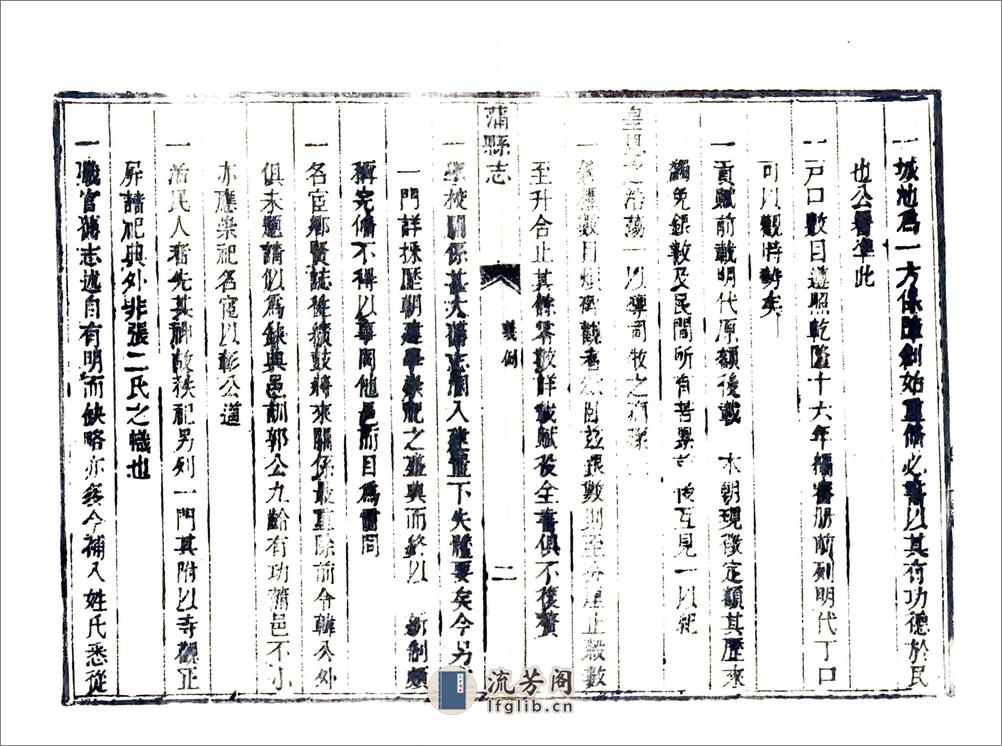 一城池爲一方保障創始重脩必書以其有功德於民
也公署準此
一戸口數目遵照乾隆十六年編審册前列明代丁口
可以觀時勢矣
一貢賦前載明代原額後載 本朝現徵定額其歷來
蠲免銀數及民間所有苦累 互見一以紀
皇恩之浩蕩一以 司牧之
數目 銀數則至 止穀數
至升合止其餘零數詳載賦役全書俱不復贅
蒲縣志
義例
二
一學校關係甚大舊志溷入建置下失體要矣今另
一門詳採歷朝建學崇祀之盛典而終以 新制頗
稱完備不稱以事同他邑而目爲雷同
一名宦鄉賢誌徃績鼓將來關係最重除前令韓公外
俱未題請似爲缺典邑訓郭公九齡有功蒲邑不小
亦應崇祀名宦以彰公道
一治民人者先其神故羙祀另列一門其附以寺觀正
屏諸祀典外非張二氏之幟也
一職官舊志遠自有明而缺略亦多今補入姓氏悉從
流芳阁
lfglib.cn